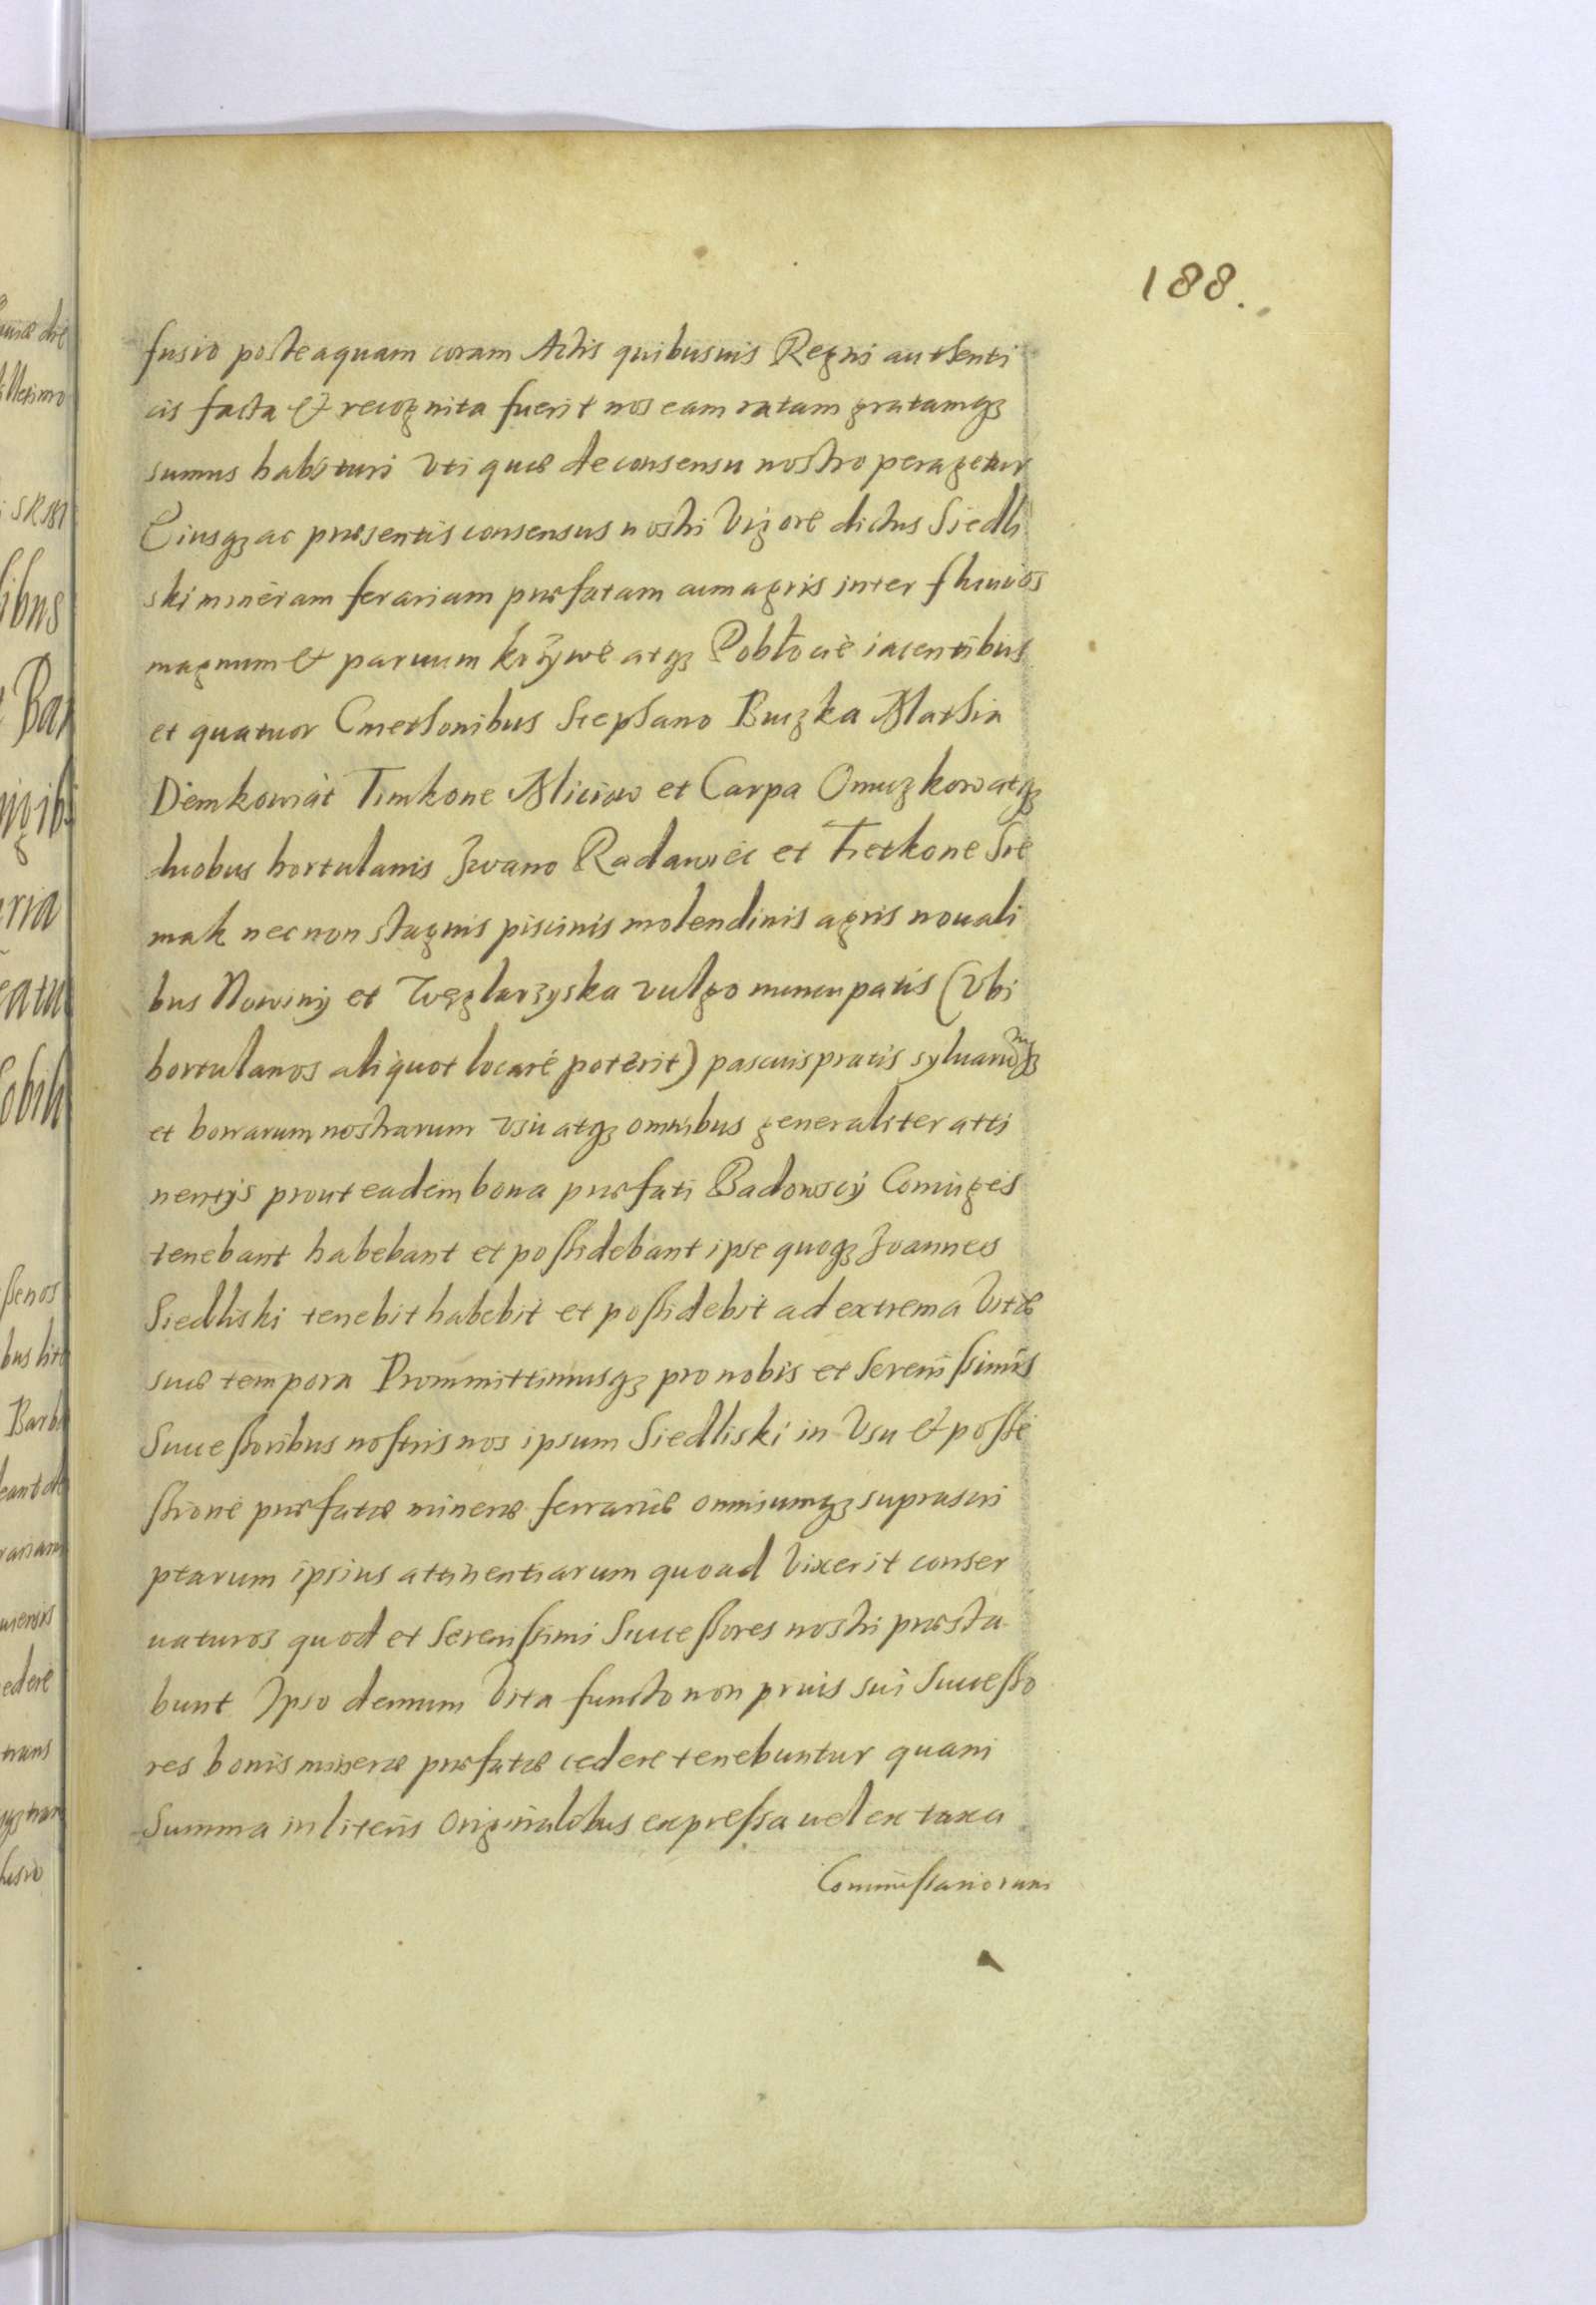 188.
fusio posteaquam coram Actis quibusuis Regni authenti
cis facta et recognita fuerit nos eam ratam gratamqз
sumus habituri Vti quæ de consensu nostro peragetur
Eiusqз ac præsentis consensus nostri Vigore dictus Siedli
ski mineram ferariam præfatam cum agris inter fluuios
magnum et paruum krzywe atqз Pobłocie iacentibus
et quatuor Cmethonibus Stephano Buczka Mathia
Demkowiat Timkone Miciow et Carpa Omuzkow atqз
duobus hortulanis Iwano Radawiec et Fietkone Sie
mak nec non stagnis piscinis molendinis agris nouali
bus Nowiny et Węglarzyska vulgo nuncupatis (Vbi
hortulanos aliquot locare poterit) pascuis pratis syluarumqз
et borrarum nostrarum vsu atqз omnibus generaliter atti
nentijs prout eadem bona præfati Badowscy Coniuges
tenebant habebant et possidebant ipse quoqз Ioannes
Siedliski tenebit habebit et possidebit ad extrema Vitæ
suæ tempora Prommittimusqз pro nobis et Serenissimis
Successoribus nostris nos ipsum Siedliski in Vsu et posse
ssione præfatæ mineræ ferrariæ omniumqз suprascri
ptarum ipsius attinentiarum quoad Vixerit conser
uaturos quod et Serenissimi Successores nostri præsta
bunt Ipso demum Vita functo non prius sui Successo
res bonis mineræ præfatæ cedere tenebuntur quam
Summa in literis Originalibus expressa uel ex taxa
Commissariorum